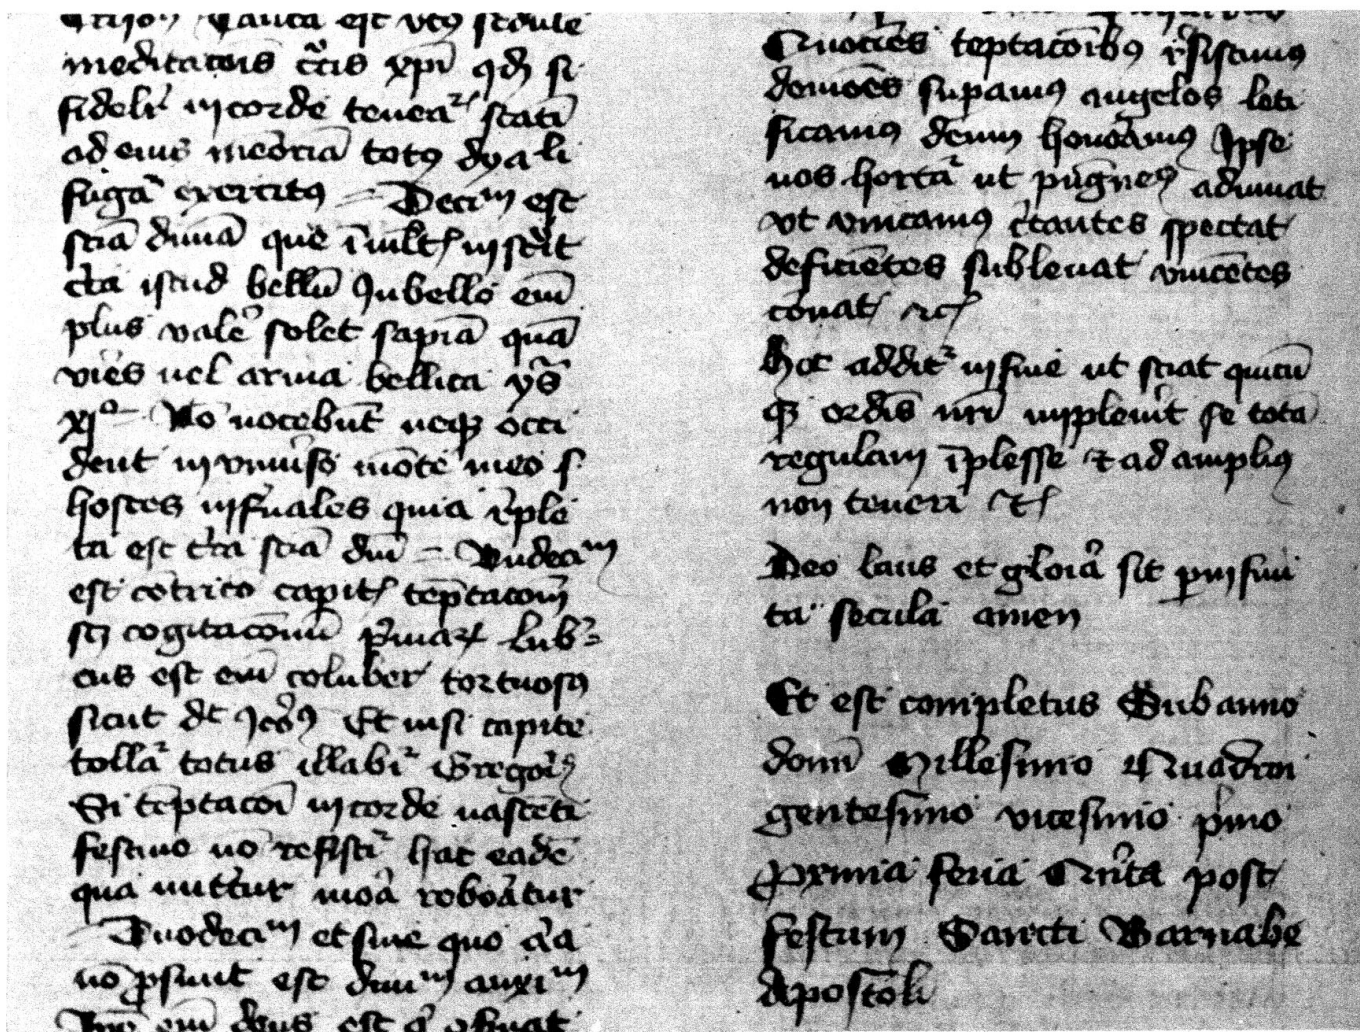 Tanta est virtus sedule
meditacois crucis xpi qd si
fideli incorde teneat stati
ad eius meoria totus dyaboli
fuga exercitus = Decim est
scia divina que multum instruit
contra istud bellu Inbello eni
plus vale solet sapia qua
vires vel arma bellica ys
xjo No nocebut neq occi
dent inuniverso mote meo s
hostes infnales quia reple
ta est tra scia dni = Undecim
est cotrico capit teptacom
scz cogitaconu pmar lub=
cus est eni coluber tortuosus
sicut dt Et nisi capite
tolla totus illabi Gregorius
Si teptacoi incorde nasceti
festino no resisti hac eade
qua nuttur mora roboratur
= Duodecim et sine quo alia
no psunt est divinm auxim
eni deus est q
Quocies teptacoibus resistimus
demoes supamus angelos leti
ficamus deum honoramus Ipse
nos horta ut pugnes adiuuat
vt vincamus certantes spectat
deficietes subleuat vincetes
conat etc
Hoc addit infine ut sciat quicu
q ordis nri impleuit se tota
regulam iplesse et ad amplius
non teneri etc
Deo laus et gloria sit p infini
ta secula amen
Et est completus Sub anno
domi Millesimo Quadrin
gentesimo vicesimo pmo
Proxima feria Quita post
festum Sancti Barnabe
Apostoli